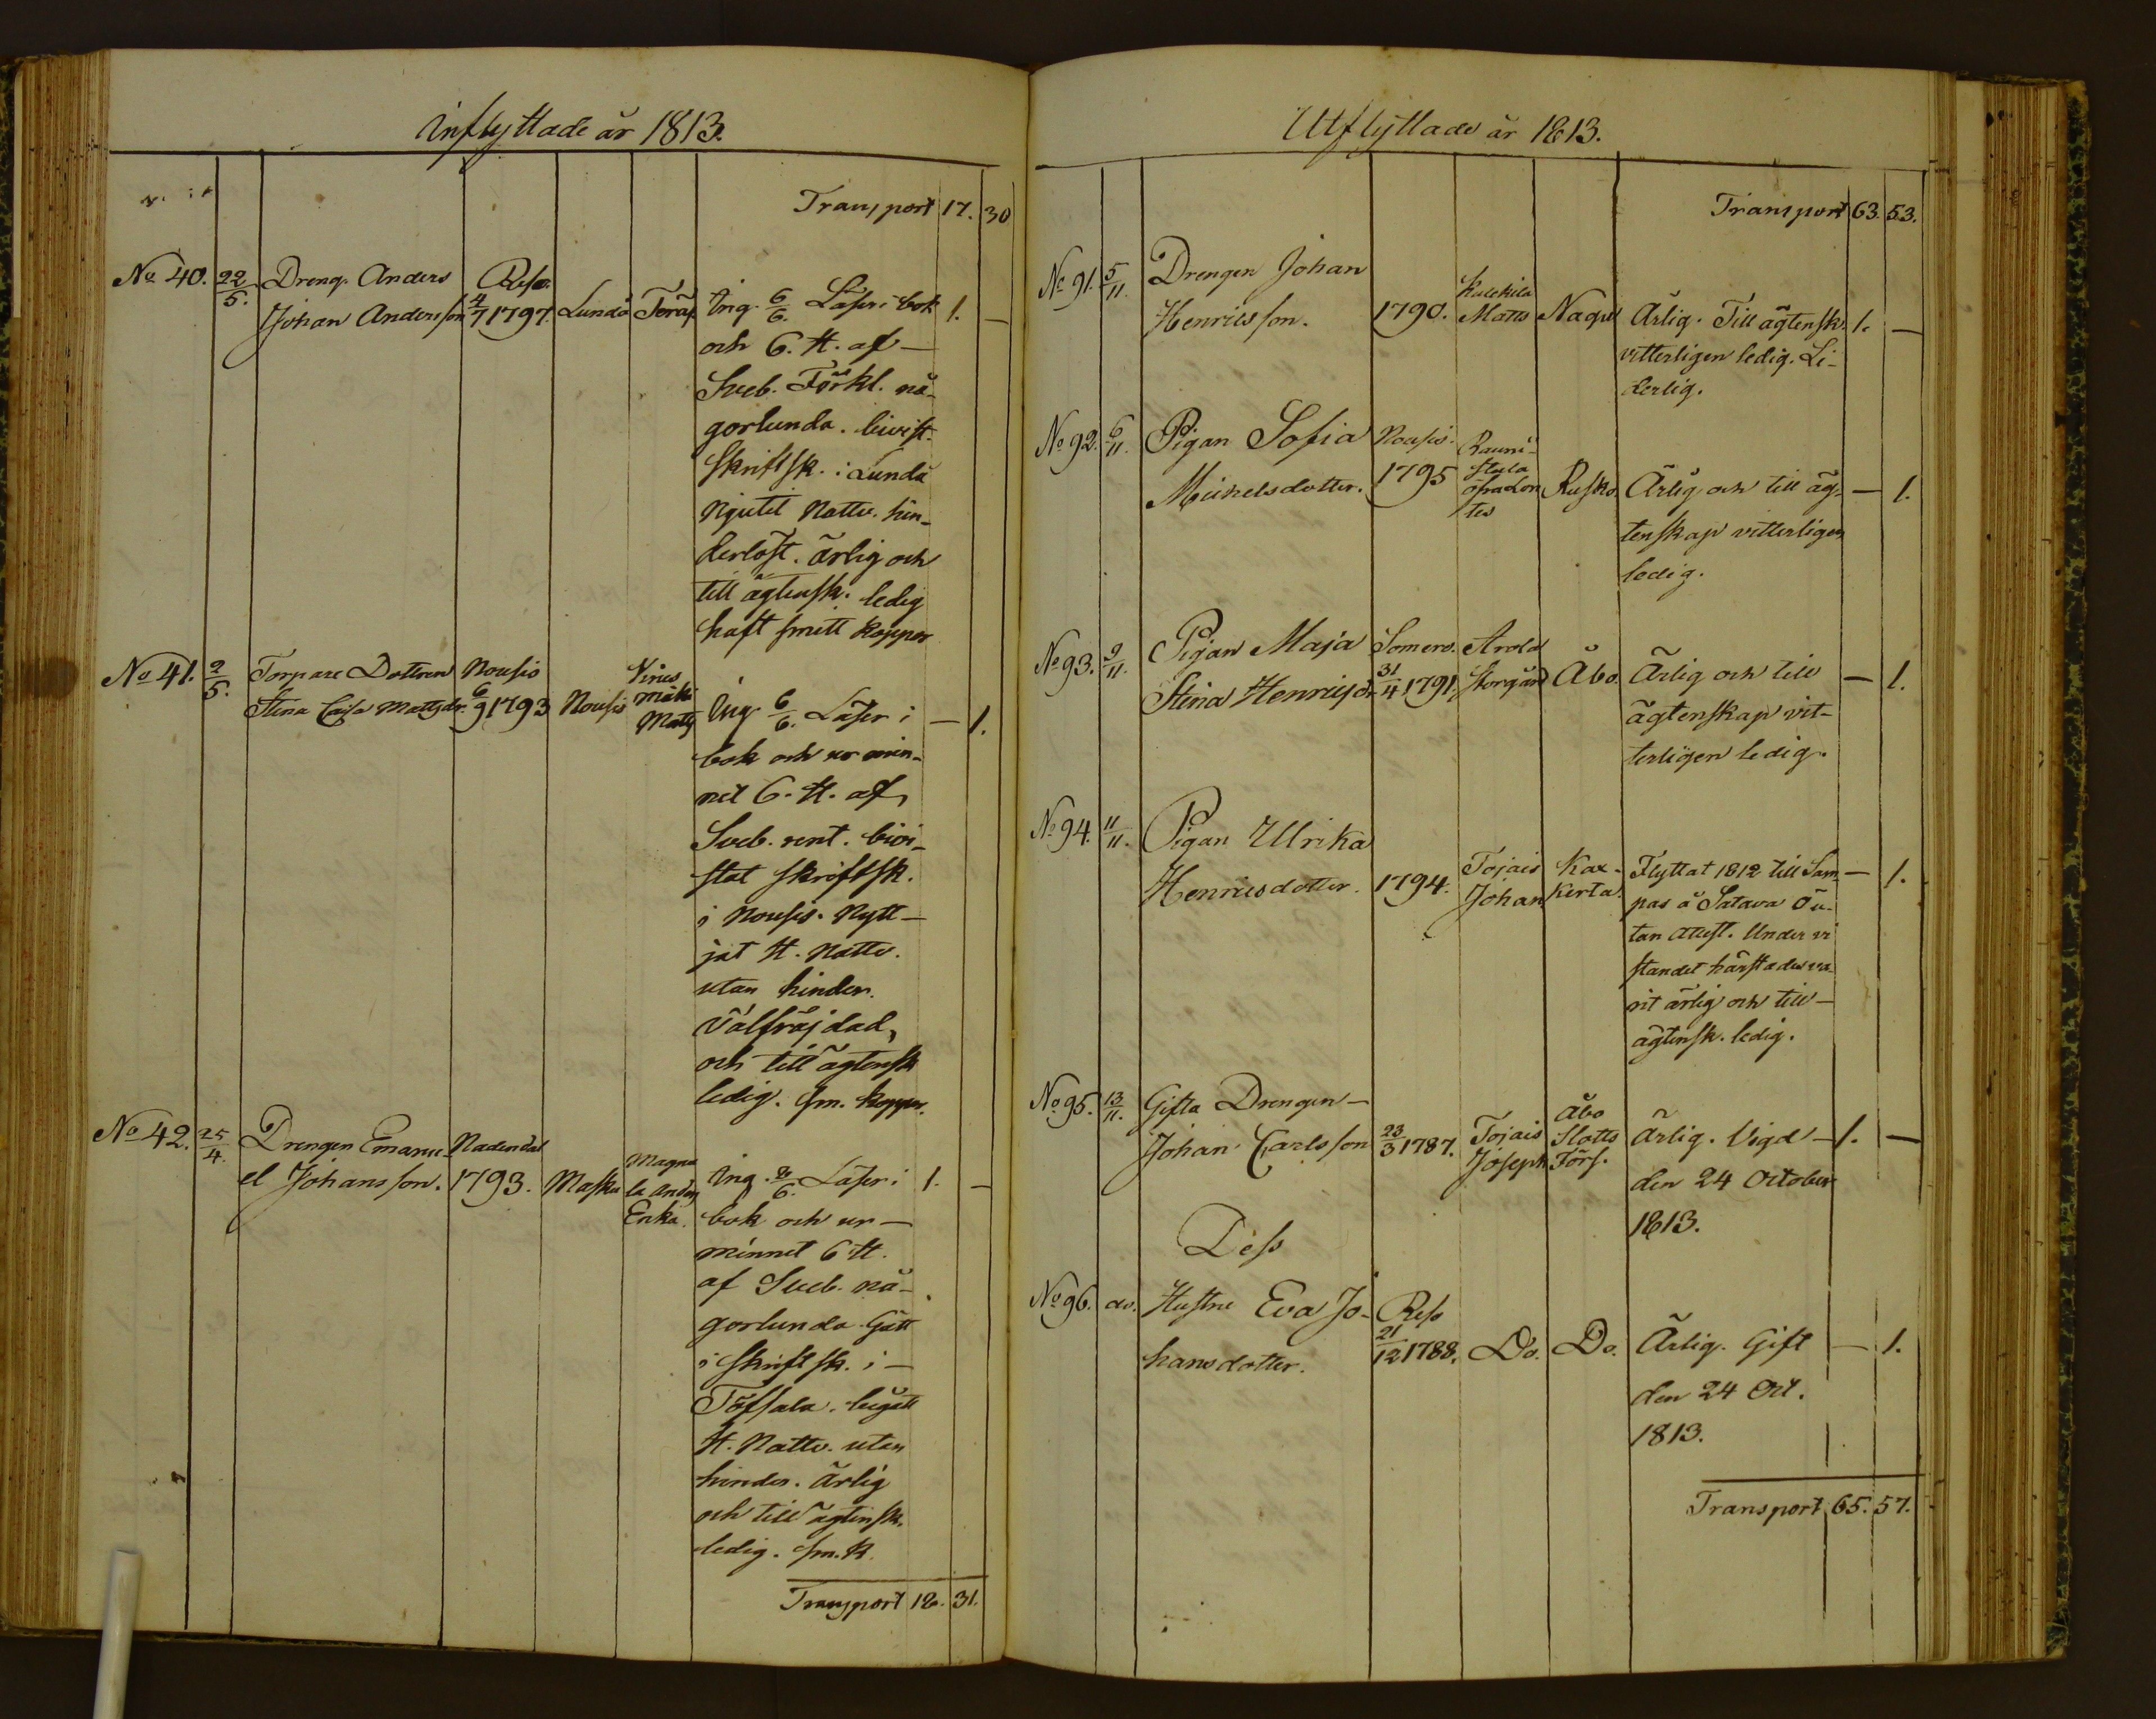 Inflyttade år 1813.
Transport 17. 30
No 40. 22/5. Dreng. Anders Reso.
Johan Andersson 4/7 1797. Lundo Ing. 6/6. Läser i bok 1. —
och C. H. af —
Sveb. Förkl. nå-
gorlunda. bivist.
Skriftsk. i Lundo
Njutit Nattv. hin-
derlöst. Ärlig och
till ägtensk. ledig
haft smitt koppor
No 41. 2/5. Torpare Dottren Nousis Nines
Stina Caisa Mattsdr. 6/9 1793 Nousis mäki
Matts Ing. 6/6. Läser i — 1.
bok och ur min-
net C. H. af
Sveb. rent. bivi-
stat skriftsk.
i Nousis. Nytt-
jat H. Nattv.
utan hinder.
Välfräjdad,
och till ägtensk
ledig. sm. koppor.
No 42. 25/4. Drengen Emanu- Nadendal
el Johansson. 1793. Masku Magnu
la Anders
Erika. Ing. 6. Läser i 1. —
bok och ur —
minnet C. H.
af Sveb. nå-
gorlunda. Gått
i skriftsk. i —
Töfsala. begått
H. Nattv. utan
hinder. Ärlig
och till ägtensk.
ledig. sm. k.
Transport 18. 31.
Utflyttade år 1813.
Transport 63. 53.
No 91. 5/11. Drengen Johan
Henricsson. 1790. Kulckila
Matts Nagu Ärlig. Till ägtensk. 1. —
vitterligen ledig. Li-
derlig.
No 92. 6/11. Pigan Sofia Nousis. Rauni-
Michelsdotter. 1795 stula
Rusko. Ärlig och till äg- — 1.
tenskap vitterligen
ledig.
No 93. 9/11. Pigan Maja Somero. Arola
Stina Henricsdr. 31/4 1791. Storgård Åbo. Ärlig och till — 1.
ägtenskap vit-
terligen ledig.
No 94. 11/11. Pigan Ulrika
Henricsdotter. 1794. Tojais Kax-
Johan kerta. Flyttat 1812 till Sam- — 1.
pas å Satava Ö u-
tan attest. Under vi
standet härstädes va-
rit ärlig och till —
ägtensk. ledig.
No 95. 13/11. Gifta Drengen —
Johan Carlsson 23/3 1787. Tojais Åbo
Joseph Slotts
Förs. Ärlig. Vigd — 1. —
den 24 October
1813.
Dess
No 96. do. Hustru Eva Jo- Reso
hansdotter. 21/12 1788. Do. Do. Ärlig. Gift — 1.
den 24 Oct.
1813.
Transport 65. 57.